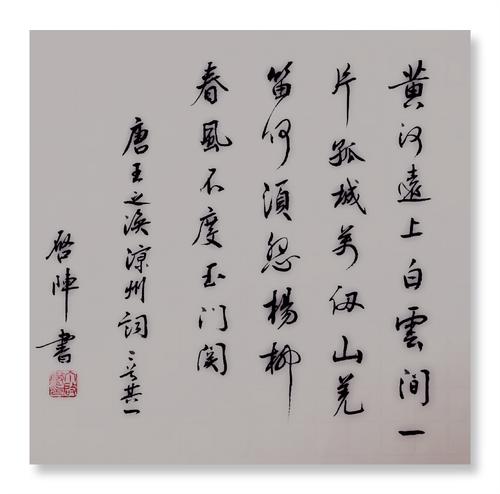 黄河遠上白雲間一
片孤城萬仞山羌
笛何須怨楊柳
春風不度玉门関
唐王之渙涼州詞二首其一
啓陣書